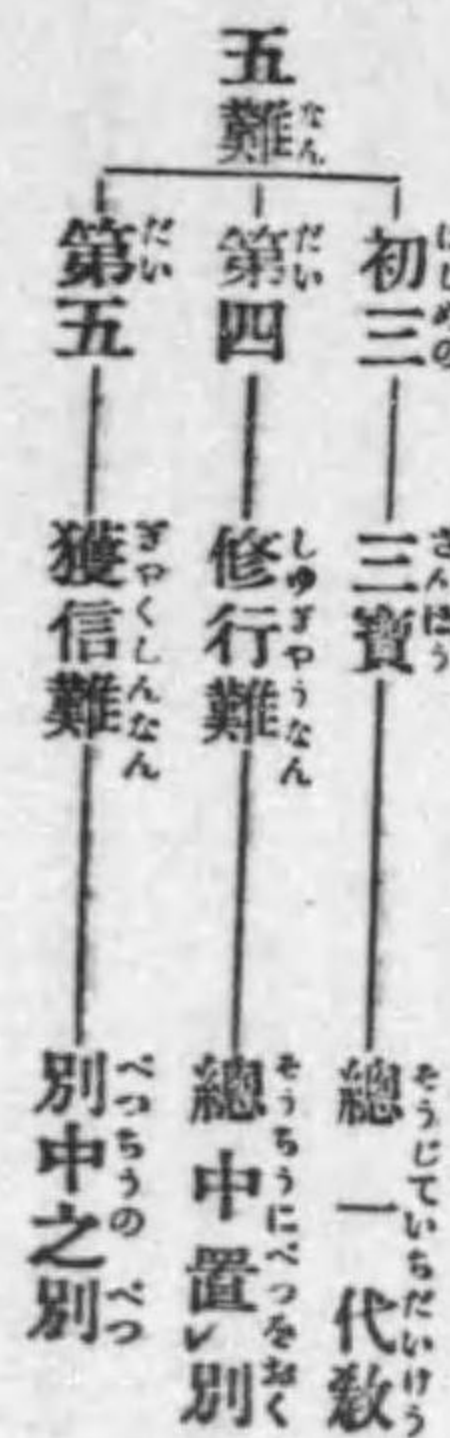 五難なん
初三はじめの
三寳さんぼう
總一代教そうじていちだいけう
第四だい
修行難しゆぎやうなん
總中置レ別そうちうにべつをおく
第五だい
獲信難ぎやくしんなん
別中之別べつちうのべつ